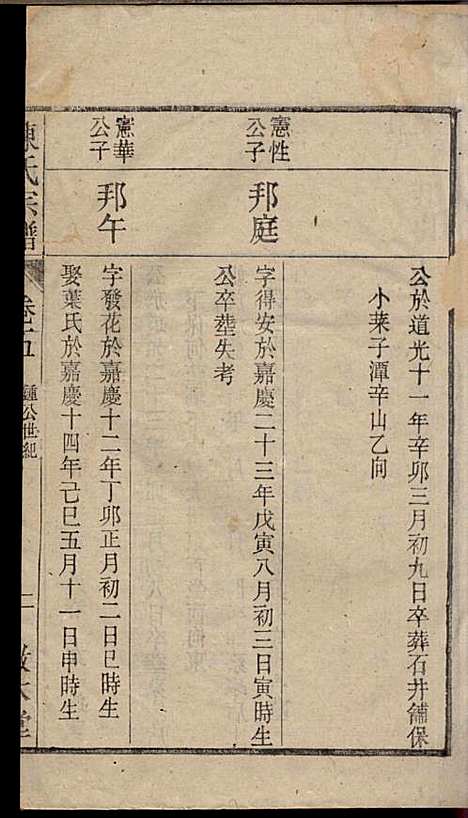 公於道光十一年辛卯三月初九日卒葬石井舖保
小萊子潭辛山乙向
憲性
公子
邦庭
字得安於嘉慶二十三年戊寅八月初三日寅時生
公卒塟失考
憲華
公子
邦午
字發花於嘉慶十二年丁卯正月初二日巳時生
娶葉氏於嘉慶十四年己巳五月十一日申時生
陳氏宗譜
卷十五
鍾公世紀
二
敦本堂